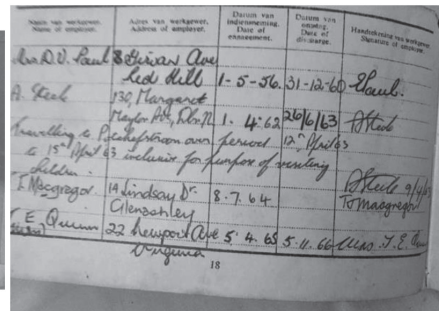 Naam van werkgewer. Name of employer. Adres van werkgewer. Address of employer. Datum van indiensneming. Date of engagement. Datum van ontslag. Date of discharge. Handtekening van werkgewer. Signature of employer.
Mrs D.V. Paul 8 Ave
Red Hill 1-5-56. 31-12-60 Paul.
A. Steele 130, Margaret
Maytor Ave, Dbn. N. 1. 4. 62 26/6/63 A Steele
Travelling to Potchefstroom over period 12th April 63
to 15th April 63 inclusive for purpose of visiting
children. A Steele 9/4/63
T. Macgregor. 14 Lindsay Dr. 8. 7. 64 T. Macgregor
Glenashley
T. E. Quinn 22 Newport Ave 5. 4. 65 5. 11. 66 T. E. Quinn
Virginia
18